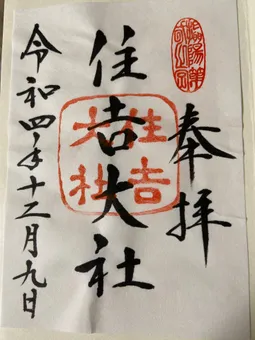 奉拝
住吉大社
令和四年十二月九日
住吉
大社